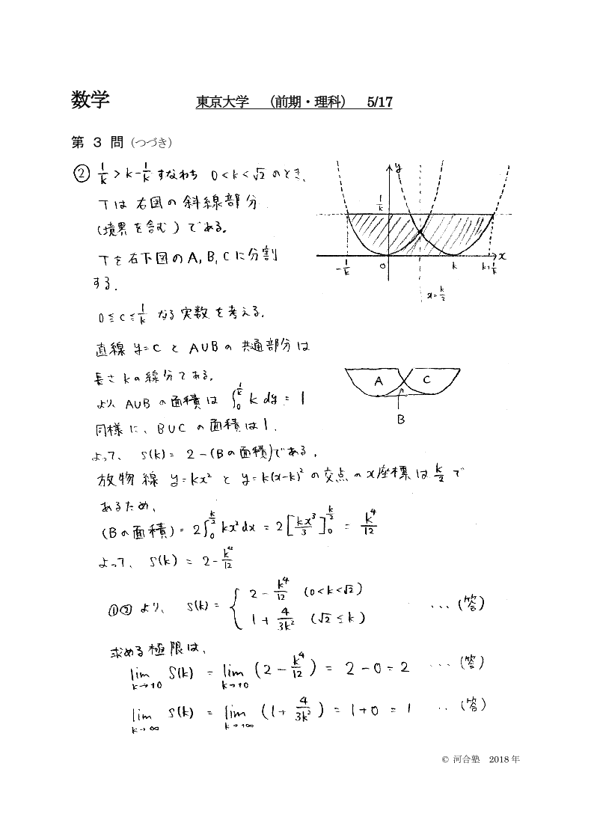 数学 東京大学 (前期・理科) 5/17
第 3 問 (つづき)
② 1/k > k-1/k すなわち 0<k<√2 のとき、
Tは右図の斜線部分
(境界を含む) である。
Tを右下図のA, B, Cに分割
する.
0≦c≦1/k なる実数を考える.
直線 y=c と A∪B の共通部分は
長さ k の線分である。
より A∪B の面積は ∫_0^{1/k} k dy = 1
同様に、B∪C の面積は 1.
よって、S(k) = 2-(Bの面積)である.
放物線 y=kx² と y=k(x-k)² の交点の x座標は k/2 で
あるため、
(Bの面積) = 2∫_0^{k/2} kx²dx = 2[kx³/3]_0^{k/2} = k⁴/12
よって、S(k) = 2-k⁴/12
①②より、 S(k) = { 2 - k⁴/12 (0<k<√2)
1 + 4/3k² (√2≦k) … (答)
求める極限は、
lim_{k→+0} S(k) = lim_{k→+0} (2 - k⁴/12) = 2-0 = 2 … (答)
lim_{k→∞} S(k) = lim_{k→∞} (1 + 4/3k²) = 1+0 = 1 … (答)
y
1/k
-1/k
0
k
k+1/k
x
x=k/2
A
C
B
© 河合塾 2018 年